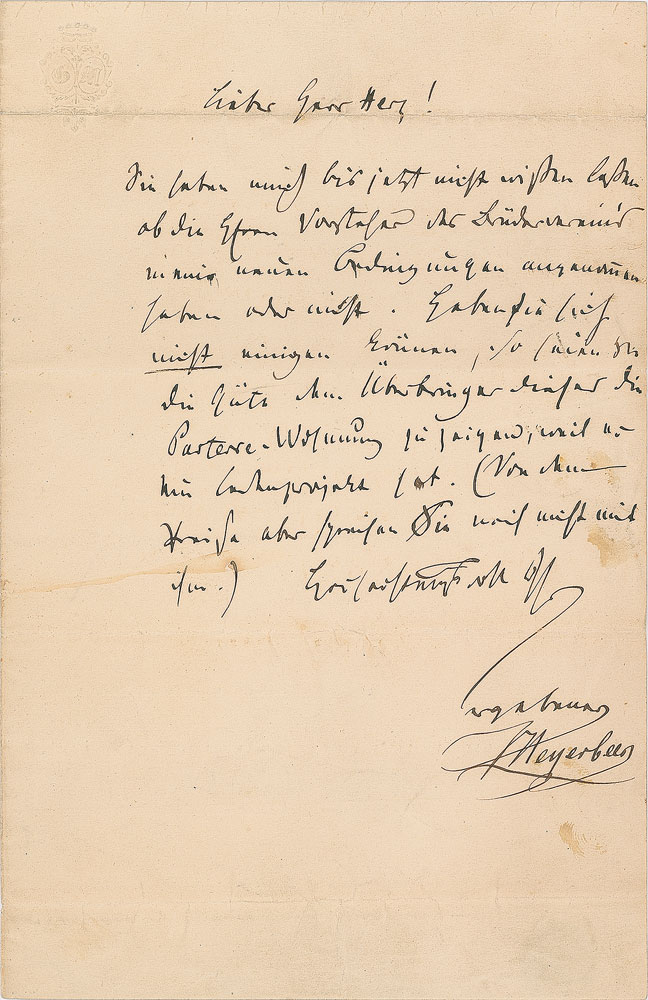 Lieber Herr Herz!
Sie haben mich bis jetzt nicht wißen laßen
ob die Herrn Vorsteher des Brüdervereins
meine neuen Bedingungen angenommen
haben oder nicht. Haben sie sich
nicht einigen können, so seien Sie
die Güte dem Überbringer dieses die
Parterre-Wohnung zu zeigen, weil er
ein hat. (Von dem
Preise aber sprechen Sie noch nicht mit
ihm.) Hochachtungsvoll Ihr
ergebener
Meyerbeer